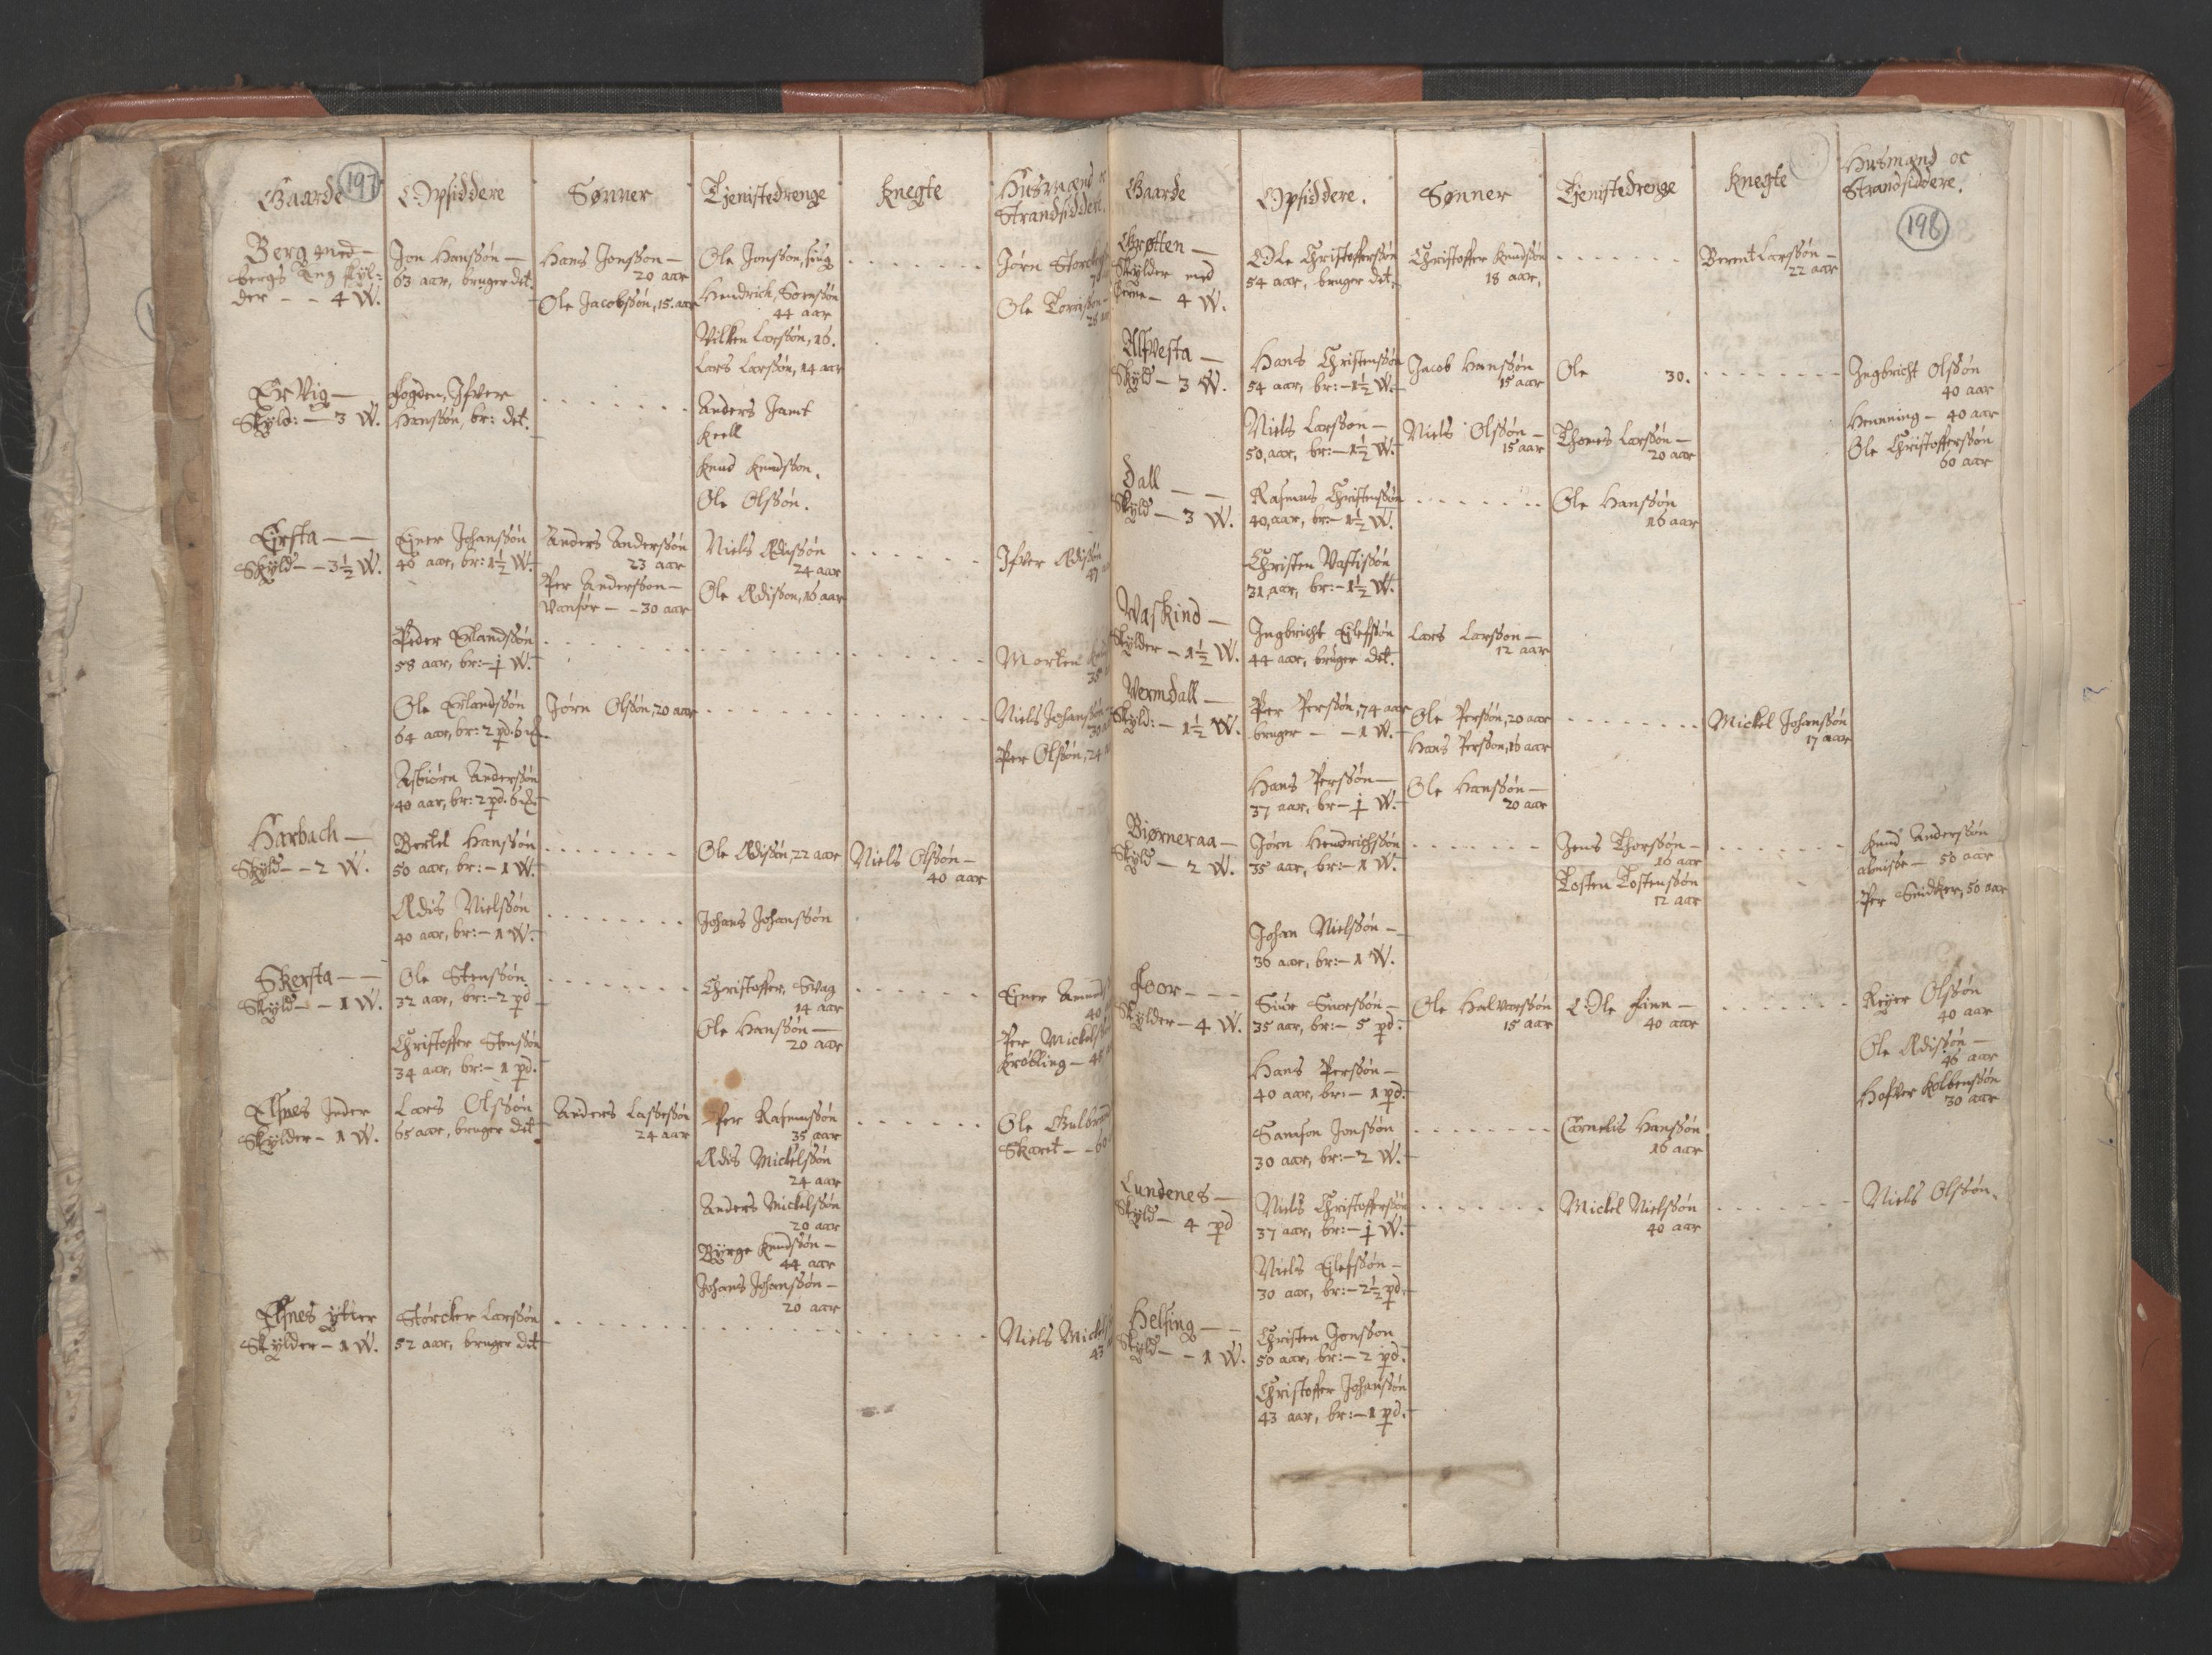 197
Gaarde
Opsiddere
Sønner
Tjenistedrenge
Knegte
Husmænd oc
Strandsiddere.
Berg med
bergs Eng skyl-
der - - 4 W.
Jon Hanssøn
63 aar, bruger det.
Hans Jonssøn
20 aar
Ole Jacobssøn, 15. aar
Ole Jonssøn, siug
Hendrich Sørenssøn
44 aar
Vilken Larssøn, 16.
Lars Larssøn, 14 aar
Jørn
Ole
Er Vig
Skyld: - 3 W.
fogden, Ifver
Hanssøn, br: det.
Anders Jamt
Keell
Knud Knudssøn.
Ole Olssøn.
Ejrsta
Skyld - - 3½ W.
Ejner Johanssøn
40 aar, br: 1½ W.
Anders Anderssøn
23 aar
Per Anderssøn
Vanfør - - 30 aar
Niels Ædissøn
24 aar
Ole Ædissøn, 16 aar
Ifver Ædissøn
Peder Erlandssøn
58 aar, br: - 1 W.
Morten
Ole Erlandssøn
64 aar, br: 2 pd. 6
Jørn Olssøn, 20 aar
Niels Johanssøn
Per Olssøn, 24
Asbiørn Anderssøn
40 aar, br: 2 pd. 6
Harbach
Skyld - - 2 W.
Bertel Hanssøn
50 aar, br: - 1 W.
Ole Ædissøn, 22 aar
Niels Olssøn
40 aar
Ædis Nielssøn
40 aar, br: - 1 W.
Johans Johanssøn
Skersta
Skyld - - 1 W.
Ole Stenssøn
32 aar, br: - 2 pd
Christoffer, Svag
14 aar
Ole Hanssøn
20 aar
Ejner
Per
Krøbling
Christoffer Stenssøn
34 aar, br: - 1 pd.
Elsnes Inder
Skylder - 1 W.
Lars Olssøn
65 aar, bruger det
Anders Lassessøn
24 aar
Per Rasmussøn
35 aar
Ædis Mickelssøn
24 aar
Anders Mickelssøn
20 aar
Byrge Knudssøn
44 aar
Johans Johanssøn
20 aar
Ole
Skaret
Elsnes ytter
Skylder - 1 W.
Størcker Larssøn
52 aar, bruger det
Niels
43
198
Gaarde
Opsiddere.
Sønner
Tjenistedrenge
Knegte
Husmænd oc
Strandsiddere.
Grøtten
Skylder med
4 W.
Ole Christofferssøn
54 aar, bruger det,
Christoffer Knudssøn
18 aar,
Bernt Larssøn
22 aar
Alfvesta
Skyld - 3 W.
Hans Christenssøn
54 aar, br: - 1½ W.
Jacob Hanssøn
15 aar
Ole 30.
Ingbricht Olssøn
40 aar
Henning - 40 aar
Ole Christofferssøn
60 aar
Niels Larssøn
50, aar, br: - 1½ W.
Niels Olssøn
15 aar
Thomes Larssøn
20 aar
Dall
Skyld - 3 W.
Rasmus Christenssøn
40, aar, br: - 1½ W.
Ole Hanssøn
16 aar
Christen Vastissøn
31, aar, br: - 1½ W.
Waskind
Skylder - 1½ W.
Ingbricht Ejlefssøn
44 aar, bruger det.
Lars Larssøn
12 aar
Vermdall
Skyld: - 1½ W.
Per Perssøn, 74 aar
bruger - - 1 W.
Ole Perssøn, 20 aar
Hans Perssøn, 16 aar
Mickel Johanssøn
17 aar
Hans Perssøn
37 aar, br - 1 W.
Ole Hanssøn
20 aar
Biørneraa
Skyld - 2 W.
Jørn Hendrichssøn
35 aar, br: - 1 W.
Jens Thorssøn
16 aar
Tosten Tostenssøn
12 aar
Knud Anderssøn
almisse - 50 aar
Per Snidker, 50 aar
Johan Nielssøn
36 aar, br: - 1 W.
foor
Skylder - 4 W.
Siur Snorssøn
35 aar, br: - 5 pd.
Ole Halvorssøn
15 aar
Ole finn
40 aar
Rejer Olssøn
40 aar
Ole Ædissøn
46 aar
Hafver Kolbenssøn
30 aar
Hans Perssøn
40 aar, br: - 1 pd.
Samson Jonssøn
30 aar, br: - 2 W.
Cornelis Hanssøn
16 aar
Lundenes
Skyld - 4 pd
Niels Christofferssøn
37 aar, br: - 1 W.
Mickel Nielssøn
40 aar
Niels Olssøn.
Niels Ejlefssøn
30 aar, br: - 2½ pd.
Helsing
Skyld - - 1 W.
Christen Jonssøn
50 aar, br: - 2 pd.
Christoffer Johanssøn
43 aar, br: - 1 pd.